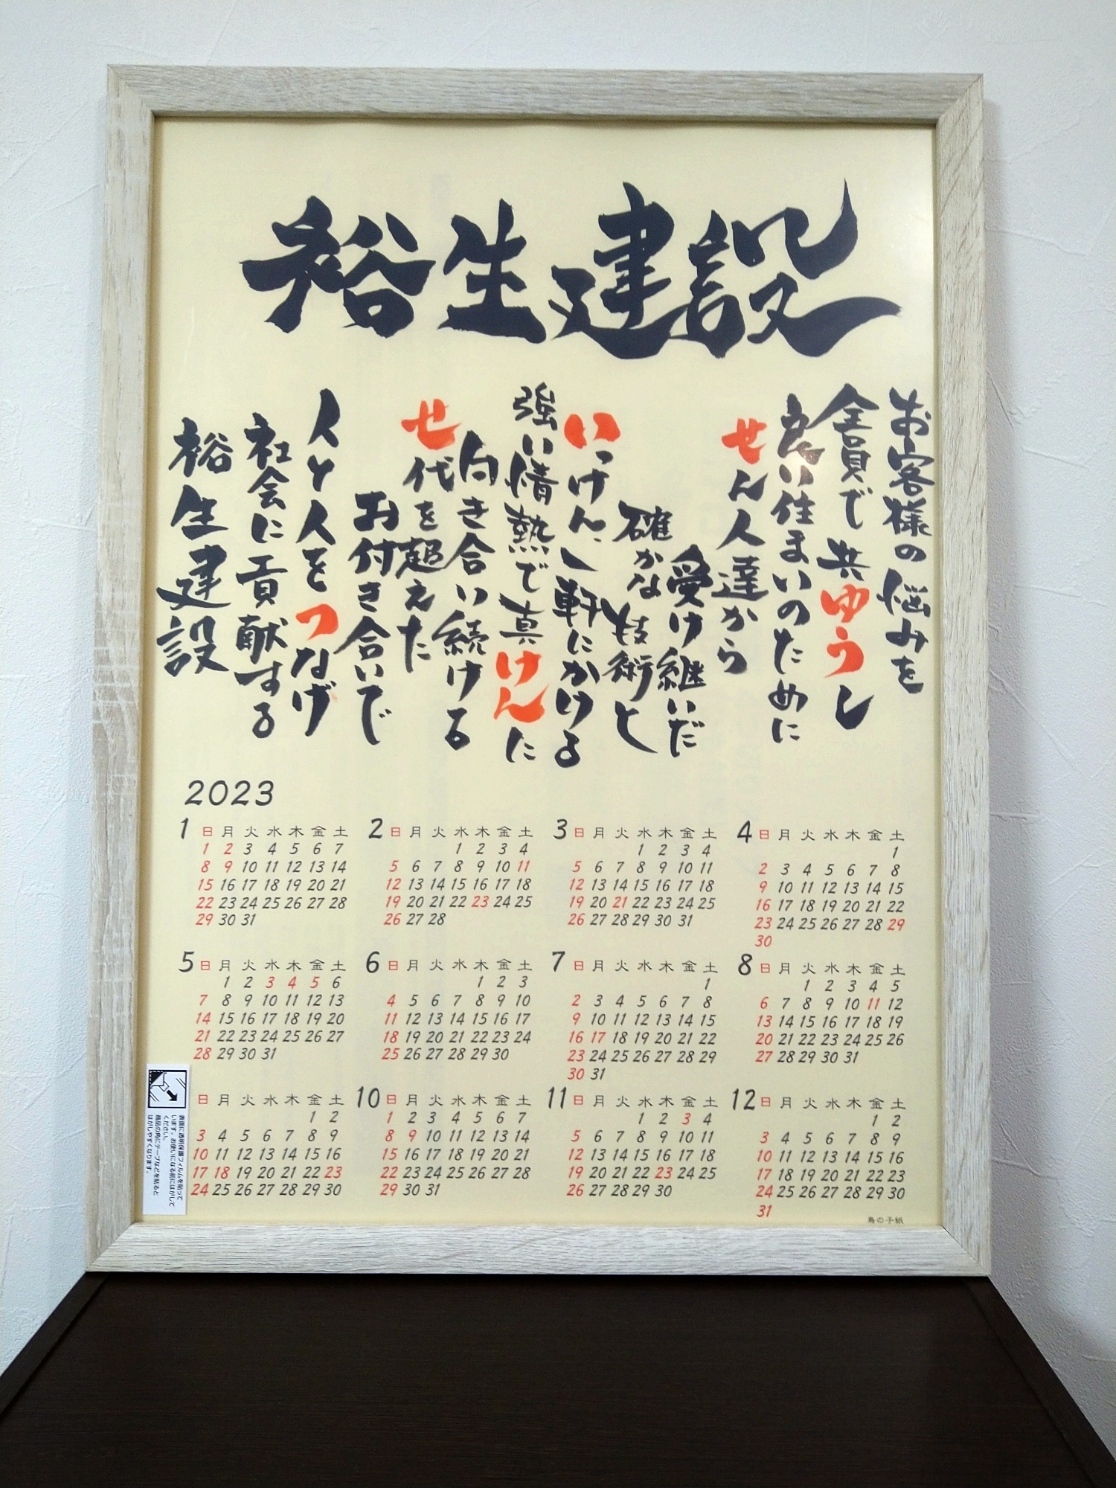 裕生建設
お客様の悩みを
全員で共ゆうし
良い住まいのために
せん人達から
受け継いだ
確かな技術と
いっけん、一軒にかける
強い情熱で真けんに
向き合い続ける
世代を超えた
お付き合いで
人と人をつなげ
社会に貢献する
裕生建設
2023
1 日 月 火 水 木 金 土
1 2 3 4 5 6 7
8 9 10 11 12 13 14
15 16 17 18 19 20 21
22 23 24 25 26 27 28
29 30 31
2 日 月 火 水 木 金 土
1 2 3 4
5 6 7 8 9 10 11
12 13 14 15 16 17 18
19 20 21 22 23 24 25
26 27 28
3 日 月 火 水 木 金 土
1 2 3 4
5 6 7 8 9 10 11
12 13 14 15 16 17 18
19 20 21 22 23 24 25
26 27 28 29 30 31
4 日 月 火 水 木 金 土
1
2 3 4 5 6 7 8
9 10 11 12 13 14 15
16 17 18 19 20 21 22
23 24 25 26 27 28 29
30
5 日 月 火 水 木 金 土
1 2 3 4 5 6
7 8 9 10 11 12 13
14 15 16 17 18 19 20
21 22 23 24 25 26 27
28 29 30 31
6 日 月 火 水 木 金 土
1 2 3
4 5 6 7 8 9 10
11 12 13 14 15 16 17
18 19 20 21 22 23 24
25 26 27 28 29 30
7 日 月 火 水 木 金 土
1
2 3 4 5 6 7 8
9 10 11 12 13 14 15
16 17 18 19 20 21 22
23 24 25 26 27 28 29
30 31
8 日 月 火 水 木 金 土
1 2 3 4 5
6 7 8 9 10 11 12
13 14 15 16 17 18 19
20 21 22 23 24 25 26
27 28 29 30 31
日 月 火 水 木 金 土
1 2
3 4 5 6 7 8 9
10 11 12 13 14 15 16
17 18 19 20 21 22 23
24 25 26 27 28 29 30
10 日 月 火 水 木 金 土
1 2 3 4 5 6 7
8 9 10 11 12 13 14
15 16 17 18 19 20 21
22 23 24 25 26 27 28
29 30 31
11 日 月 火 水 木 金 土
1 2 3 4
5 6 7 8 9 10 11
12 13 14 15 16 17 18
19 20 21 22 23 24 25
26 27 28 29 30
12 日 月 火 水 木 金 土
1 2
3 4 5 6 7 8 9
10 11 12 13 14 15 16
17 18 19 20 21 22 23
24 25 26 27 28 29 30
31
表面に透明保護フィルムを貼って
います。お使いになる前にはがして
ください。
商品の角にテープなどを貼ると
はがしやすくなります。
鳥の子紙